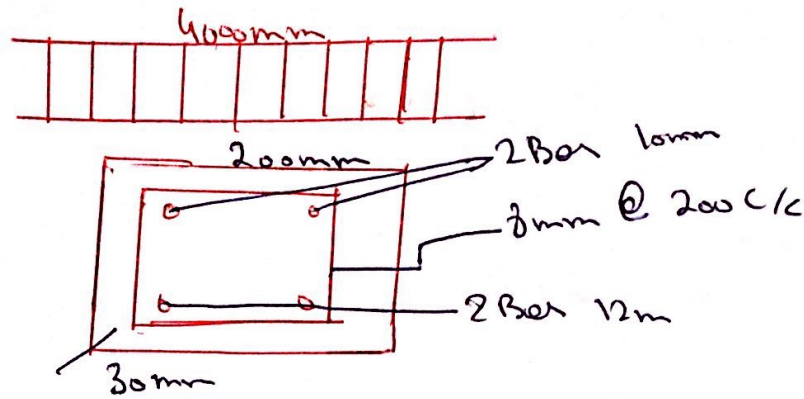 4000mm
200mm
2 Bar 10mm
8mm @ 200 C/C
2 Bar 12m
30mm